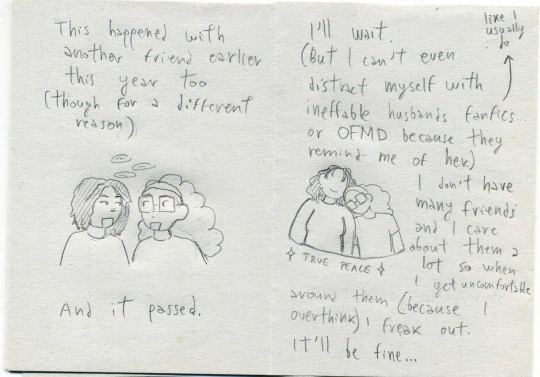 This happened with
another friend earlier
this year too
(though for a different
reason)
And it passed.
I'll wait.
like I
usually
do
(But I can't even
distract myself with
ineffable husbands fanfics
or OFMD because they
remind me of her.)
TRUE PEACE
I don't have
many friends
and I care
about them a
lot so when
I get uncomfortable
around them (because I
overthink) I freak out.
It'll be fine...